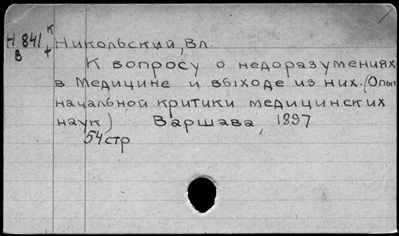 Н 841 к
В +
Никольский, Вл.
К вопросу о недоразумениях
в Медицине и выходе из них. (Опыт
начальной критики медицинских
наук) Варшава, 1897
54 стр